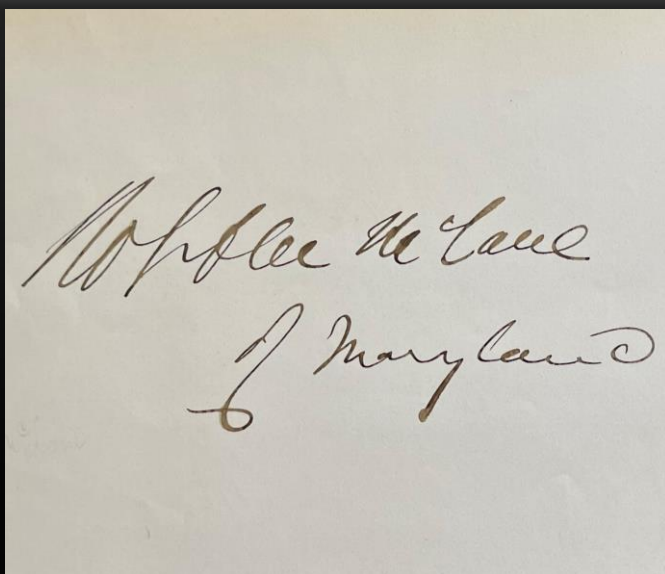 McLane
of Maryland